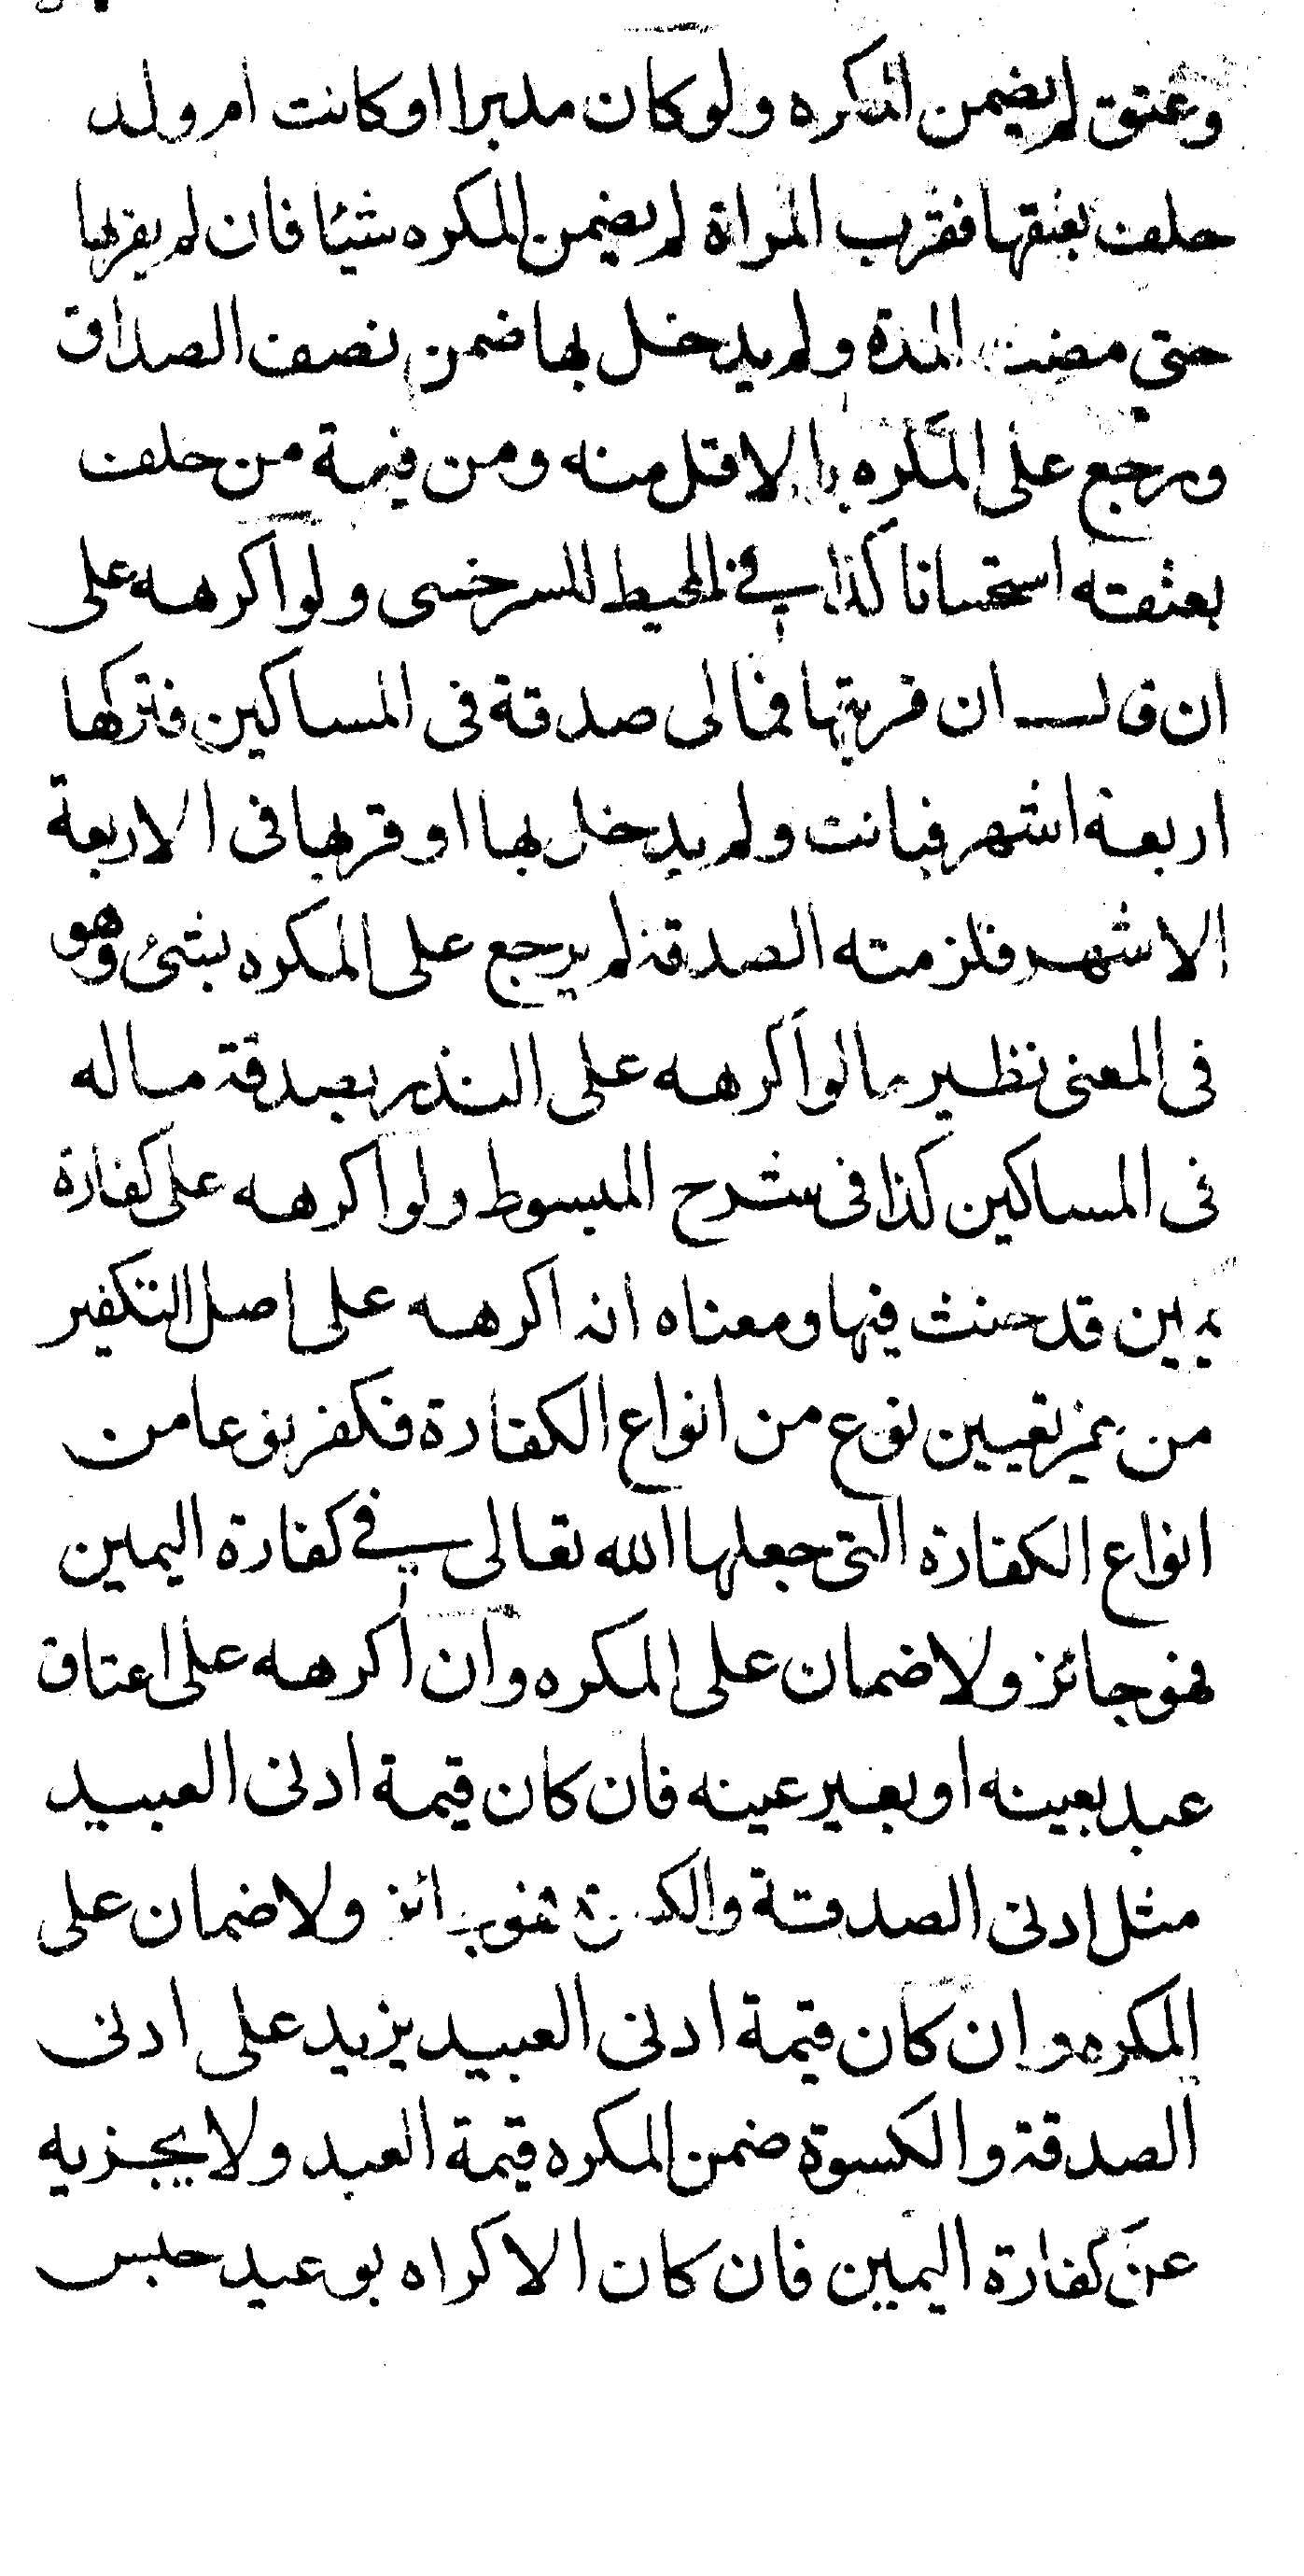 وعتق لم يضمن المكره ولو كان مدبرا او كانت ام ولد
حلف بعتقها فقرب المراة لم يضمن المكره شيئا فان لم يقربها
حتى مضت المدة ولم يدخل بها ضمن نصف الصداق
ورجع على المكره بالاقل منه ومن قيمة من حلف
بعتقته استحسانا كذا في المحيط للسرخسى ولو اكرهه على
ان قال ان قربتها فمالى صدقة فى المساكين فتركها
اربعة اشهر فبانت ولم يدخل بها او قربها فى الاربعة
الاشهر فلزمته الصدقة لم يرجع على المكره بشئ وهو
فى المعنى نظير ما لو اكرهه على النذر بصدقة ماله
فى المساكين كذا فى شرح المبسوط ولو اكرهه على كفارة
يمين قد حنث فيها ومعناه انه اكرهه على اصل التكفير
من غير تعيين نوع من انواع الكفارة فكفر بنوع من
انواع الكفارة التى جعلها الله تعالى في كفارة اليمين
فهو جائز ولا ضمان على المكره وان اكرهه على اعتاق
عبد بعينه او بغير عينه فان كان قيمة ادنى العبيد
مثل ادنى الصدقة والكسوة فهو جائز ولا ضمان على
المكره وان كان قيمة ادنى العبيد يزيد على ادنى
الصدقة والكسوة ضمن المكره قيمة العبد ولا يجزيه
عن كفارة اليمين فان كان الاكراه بوعيد حبس